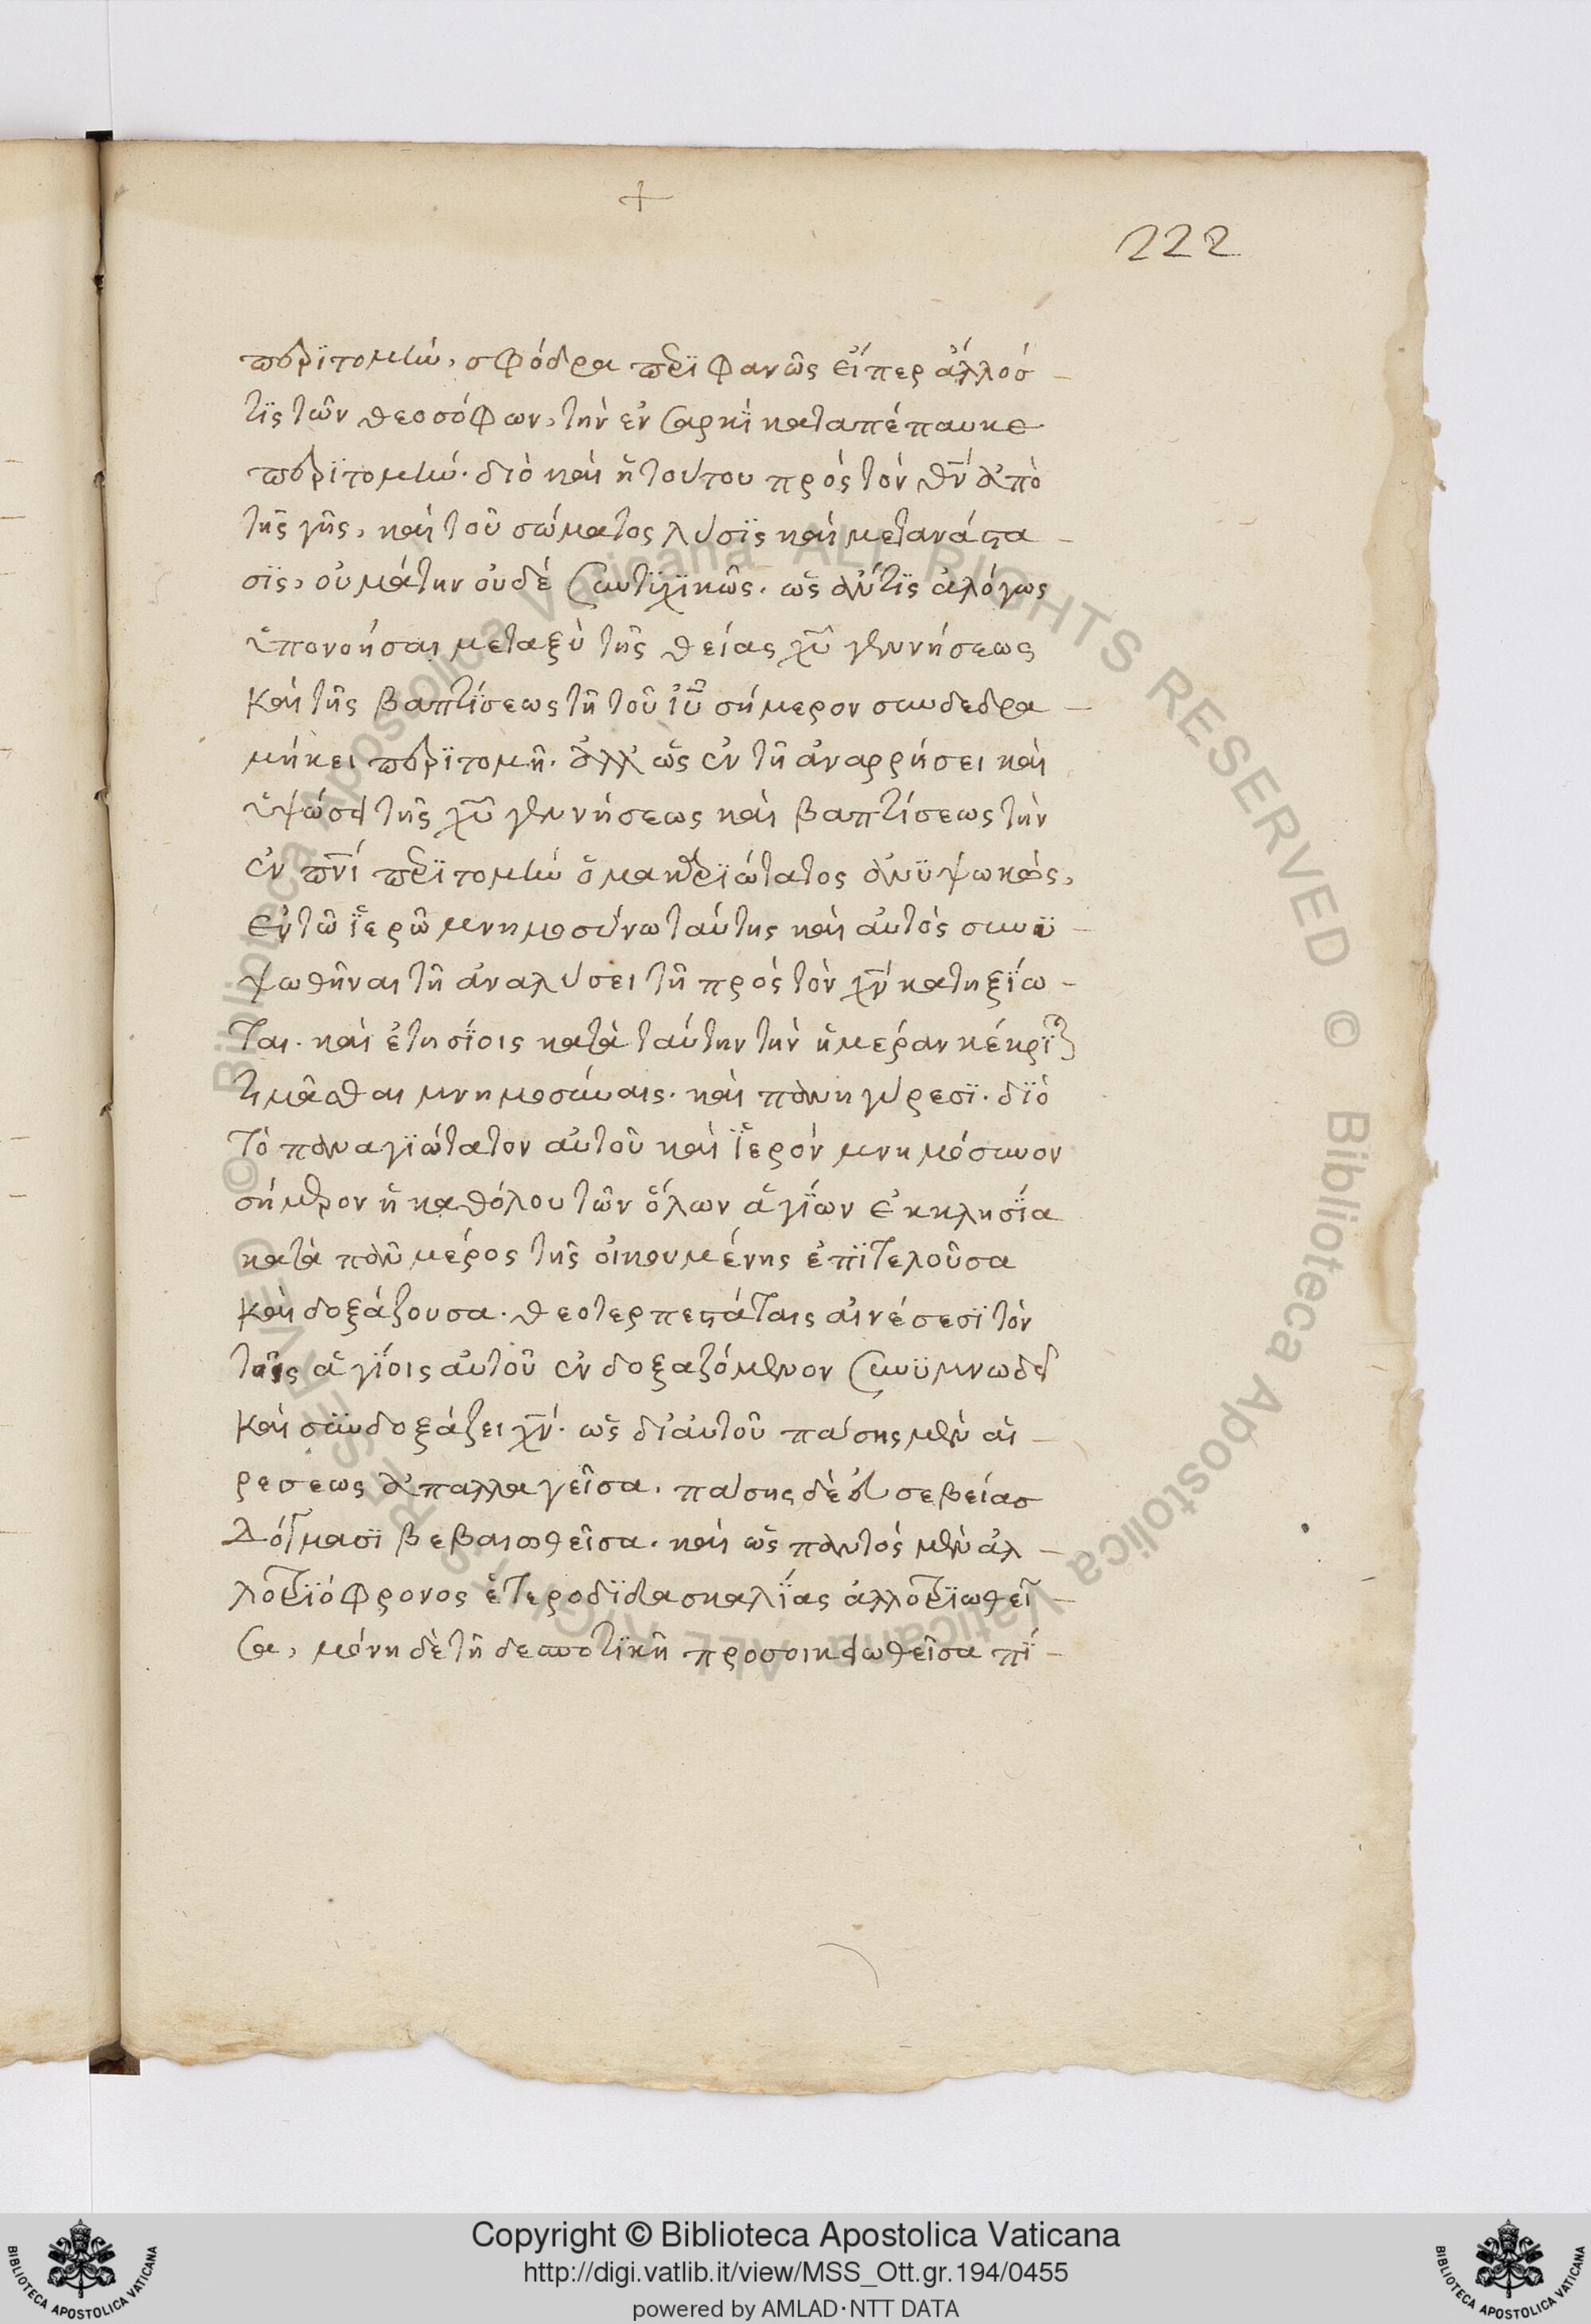 222
περϊτομὴν, σφόδρα περϊφανῶς εἴπερ ἄλλόσ
τϊς τῶν θεοσόφων, τὴν ἐν σαρκὶ καταπέπαυκε
περϊτομήν. διὸ καὶ ἡ τούτου πρὸς τὸν θ̅ν̅ ἀπὸ
τῆς γῆς, καὶ τοῦ σώματος λύσϊς καὶ μετανάστα
σϊς, οὐ μάτην οὐδὲ συντϋχϊκῶς. ὡς ἄν τϊς ἀλόγως
ὑπονοήσαι μεταξὺ τῆς θείας χ̅υ̅ γεννήσεως
καὶ τῆς βαπτΐσεως τῆ τοῦ ἰ̅υ̅ σήμερον συνδεδρα
μήκει περϊτομῆ. ἀλλ' ὡς ἐν τῆ ἀναρρήσει καὶ
ὑψώσει τῆς χ̅υ̅ γεννήσεως καὶ βαπτίσεως τὴν
ἐν π̅ν̅ι̅ περϊτομὴν ὁ μακαρϊώτατος ἀνϋψωκὼς,
ἐν τῶ ϊερῶ μνημοσύνω ταύτης καὶ αὐτὸς συνϋ
ψωθῆναι τῆ ἀναλύσει τῆ πρὸς τὸν χ̅ν̅ κατηξΐω
ται. καὶ ἐτησΐοις κατὰ ταύτην τὴν ἡμέραν κέκρϊται
τιμᾶσθαι μνημοσύναις. καὶ πανηγύρεσϊ. δϊὸ
τὸ παναγϊώτατον αὐτοῦ καὶ ϊερὸν μνημόσυνον
σήμερον ἡ καθόλου τῶν ὅλων ἁγΐων ἐκκλησΐα
κατὰ πᾶν μέρος τῆς οἰκουμένης ἐπϊτελοῦσα
καὶ δοξάζουσα. θεοτερπεστάταις αἰνέσεσϊ τὸν
τοῖς ἁγΐοις αὐτοῦ ἐνδοξαζόμενον συνϋμνωδεῖ
καὶ συνδοξάζει χ̅ν̅. ὡς δι' αὐτοῦ πάσης μὲν αἱ
ρεσεως ἀπαλλαγεῖσα. πάσης δὲ εὐσεβείασ
δόγμασϊ βεβαιωθεῖσα. καὶ ὡς παντὸς μὲν ἀλ
λοτρϊόφρονος ἑτεροδϊδασκαλΐας ἀλλοτρϊωθεῖ
σα, μόνη δὲ τῆ δεσποτϊκῆ προσοικειωθεῖσα πΐ
Copyright © Biblioteca Apostolica Vaticana
http://digi.vatlib.it/view/MSS_Ott.gr.194/0455
powered by AMLAD·NTT DATA
BIBLIOTECA APOSTOLICA VATICANA
BIBLIOTECA APOSTOLICA VATICANA
© Biblioteca Apostolica Vaticana ALL RIGHTS RESERVED © Biblioteca Apostolica Vaticana ALL RIGHTS RESERVED